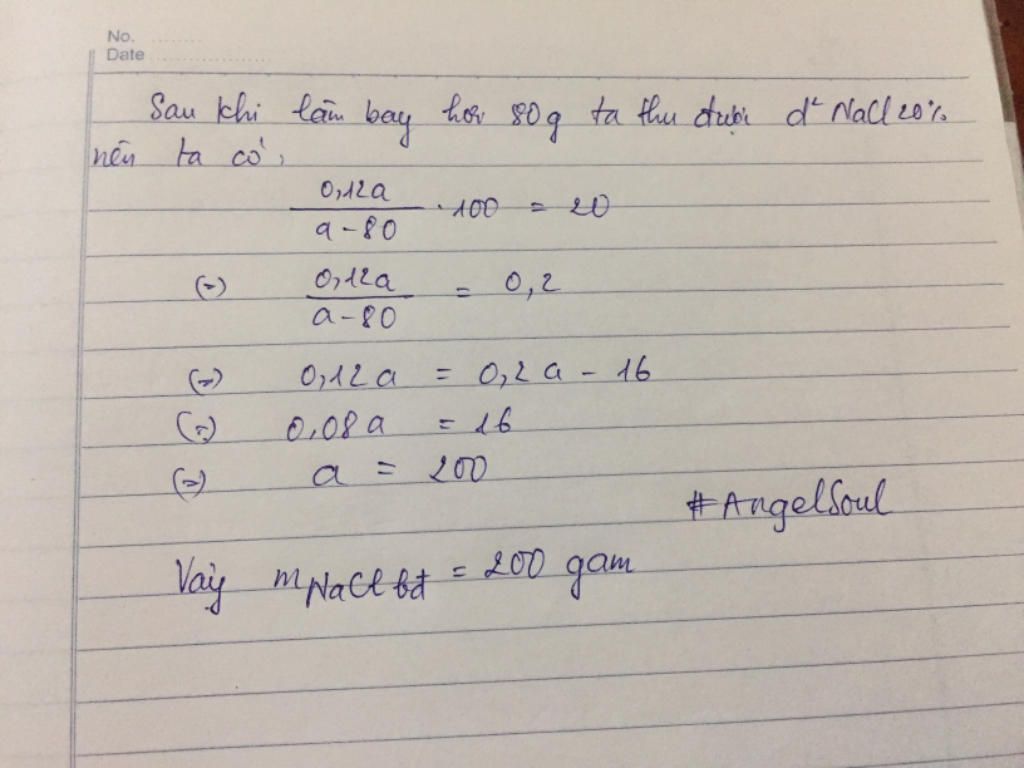 No. ........
Date ....................
Sau khi làm bay hơi 80g ta thu được d² NaCl 20%
nên ta có,
0,12a / a - 80 . 100 = 20
(=) 0,12a / a - 80 = 0,2
(=) 0,12a = 0,2a - 16
(=) 0,08a = 16
(=) a = 200
#AngelSoul
Vậy mNaCl bđ = 200 gam